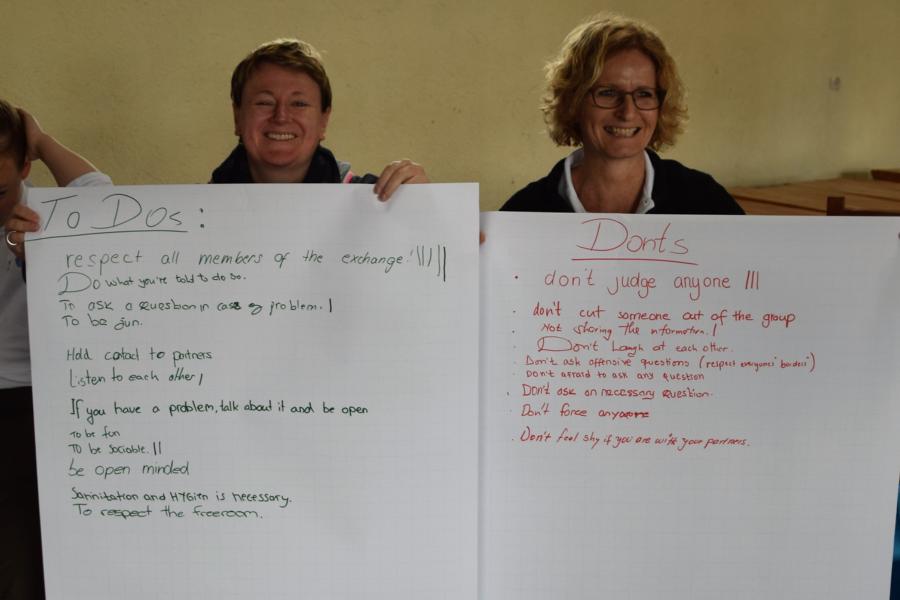 To Dos:
respect all members of the exchange!
Do what you're told to do so.
To ask a question in case of problem.
To be fun.
Hold contact to partners
Listen to each other
If you have a problem, talk about it and be open
To be fun
To be sociable.
be open minded
Sanintation and HYGien is necessary.
To respect the freeroom.
Donts
• don't judge anyone
• don't cut someone out of the group
• Not sharing the information.
• Don't Laugh at each other.
• Don't ask offensive questions (respect everyones' "borders")
• Don't afraid to ask any question
• Don't ask on necessary question.
• Don't force anyone
• Don't feel shy if you are with your partners.